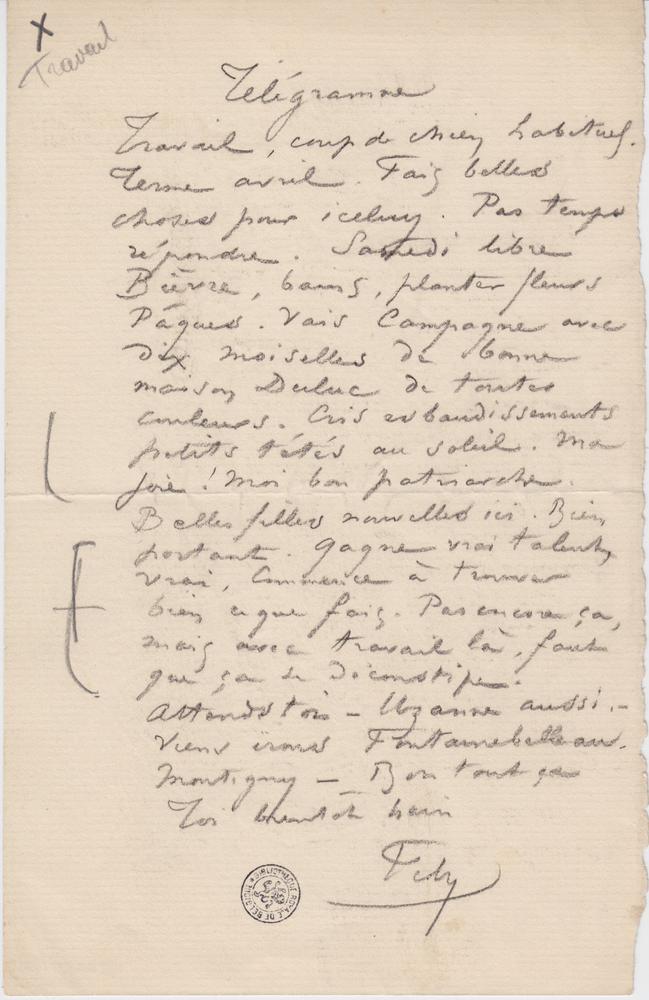 Travail
Télégramme
Travail, coup de chien habituel.
Terme avril. Fais belles
choses pour iceluy. Pas temps
répondre. Samedi libre
Bièvre, bains, planter fleurs
Pâques. Vais Campagne avec
Dix moiselles de bonne
maison Duluc de toutes
couleurs. Cris esbaudissements
petits tétés au soleil. Ma
joie ! Moi bon patriarche.
Belles filles nouvelles ici. Bien
portant. Gagne vrai talent,
vrai, Commence à trouver
bien ce que fais. Pas encore ça,
mais avec travail là, faut
que ça se déconstipe.
Attends toi – Uzanne aussi. –
Viens irons Fontainebelleau.
Montigny – Bon tout ça
Toi bientôt hein
Fély
BIBLIOTHEQUE ROYALE DE BELGIQUE